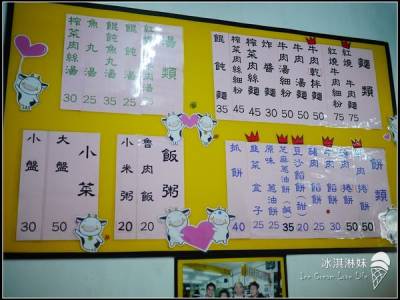 湯類
餛飩湯 35
餛飩魚丸湯 35
魚丸湯 25
榨菜肉絲湯 30
麵類
紅燒牛肉麵 75
紅燒牛肉細粉 75
牛肉湯拌麵
牛肉湯麵 50
牛肉湯細粉 50
炸醬麵 45
榨菜肉絲麵 45
榨菜肉絲細粉 45
餛飩麵 35
小菜
大盤 50
小盤 30
飯粥
魯肉飯 20
小米粥 20
餅類
牛肉捲餅
豬肉捲餅
牛肉餡餅
豬肉餡餅
豆沙餡餅(甜) 20
芝麻蔥油餅(鹹) 35
原味蔥油餅 25
韭菜盒子 25
抓餅 40
冰淇淋妹
Ice Cream Love Life